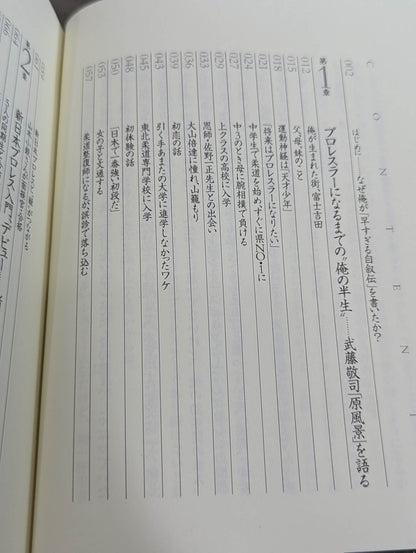 CONTENT
002 はじめに なぜ俺が「早すぎる自叙伝」を書いたか?
第1章 プロレスラーになるまでの“俺の半生”……武藤敬司「原風景」を語る
012 俺が生まれた街、富士吉田
015 父、母、妹のこと
018 運動神経は「天才少年」
021 「将来はプロレスラーになりたい」
024 中学生で柔道を始め、すぐに県NO・1に
027 中3のとき母に腕相撲で負ける
029 上クラスの高校に入学
033 恩師・佐野一正先生との出会い
036 大山倍達に憧れ、山籠もり
039 初恋の話
043 引く手あまたの大学に進学しなかったワケ
045 東北柔道専門学校に入学
048 初体験の話
050 「日本で一番強い初段だ」
053 女の子と文通する
057 柔道整復師になるが、誤診で落ち込む
第2章 新日本プロレス入門、デビュー